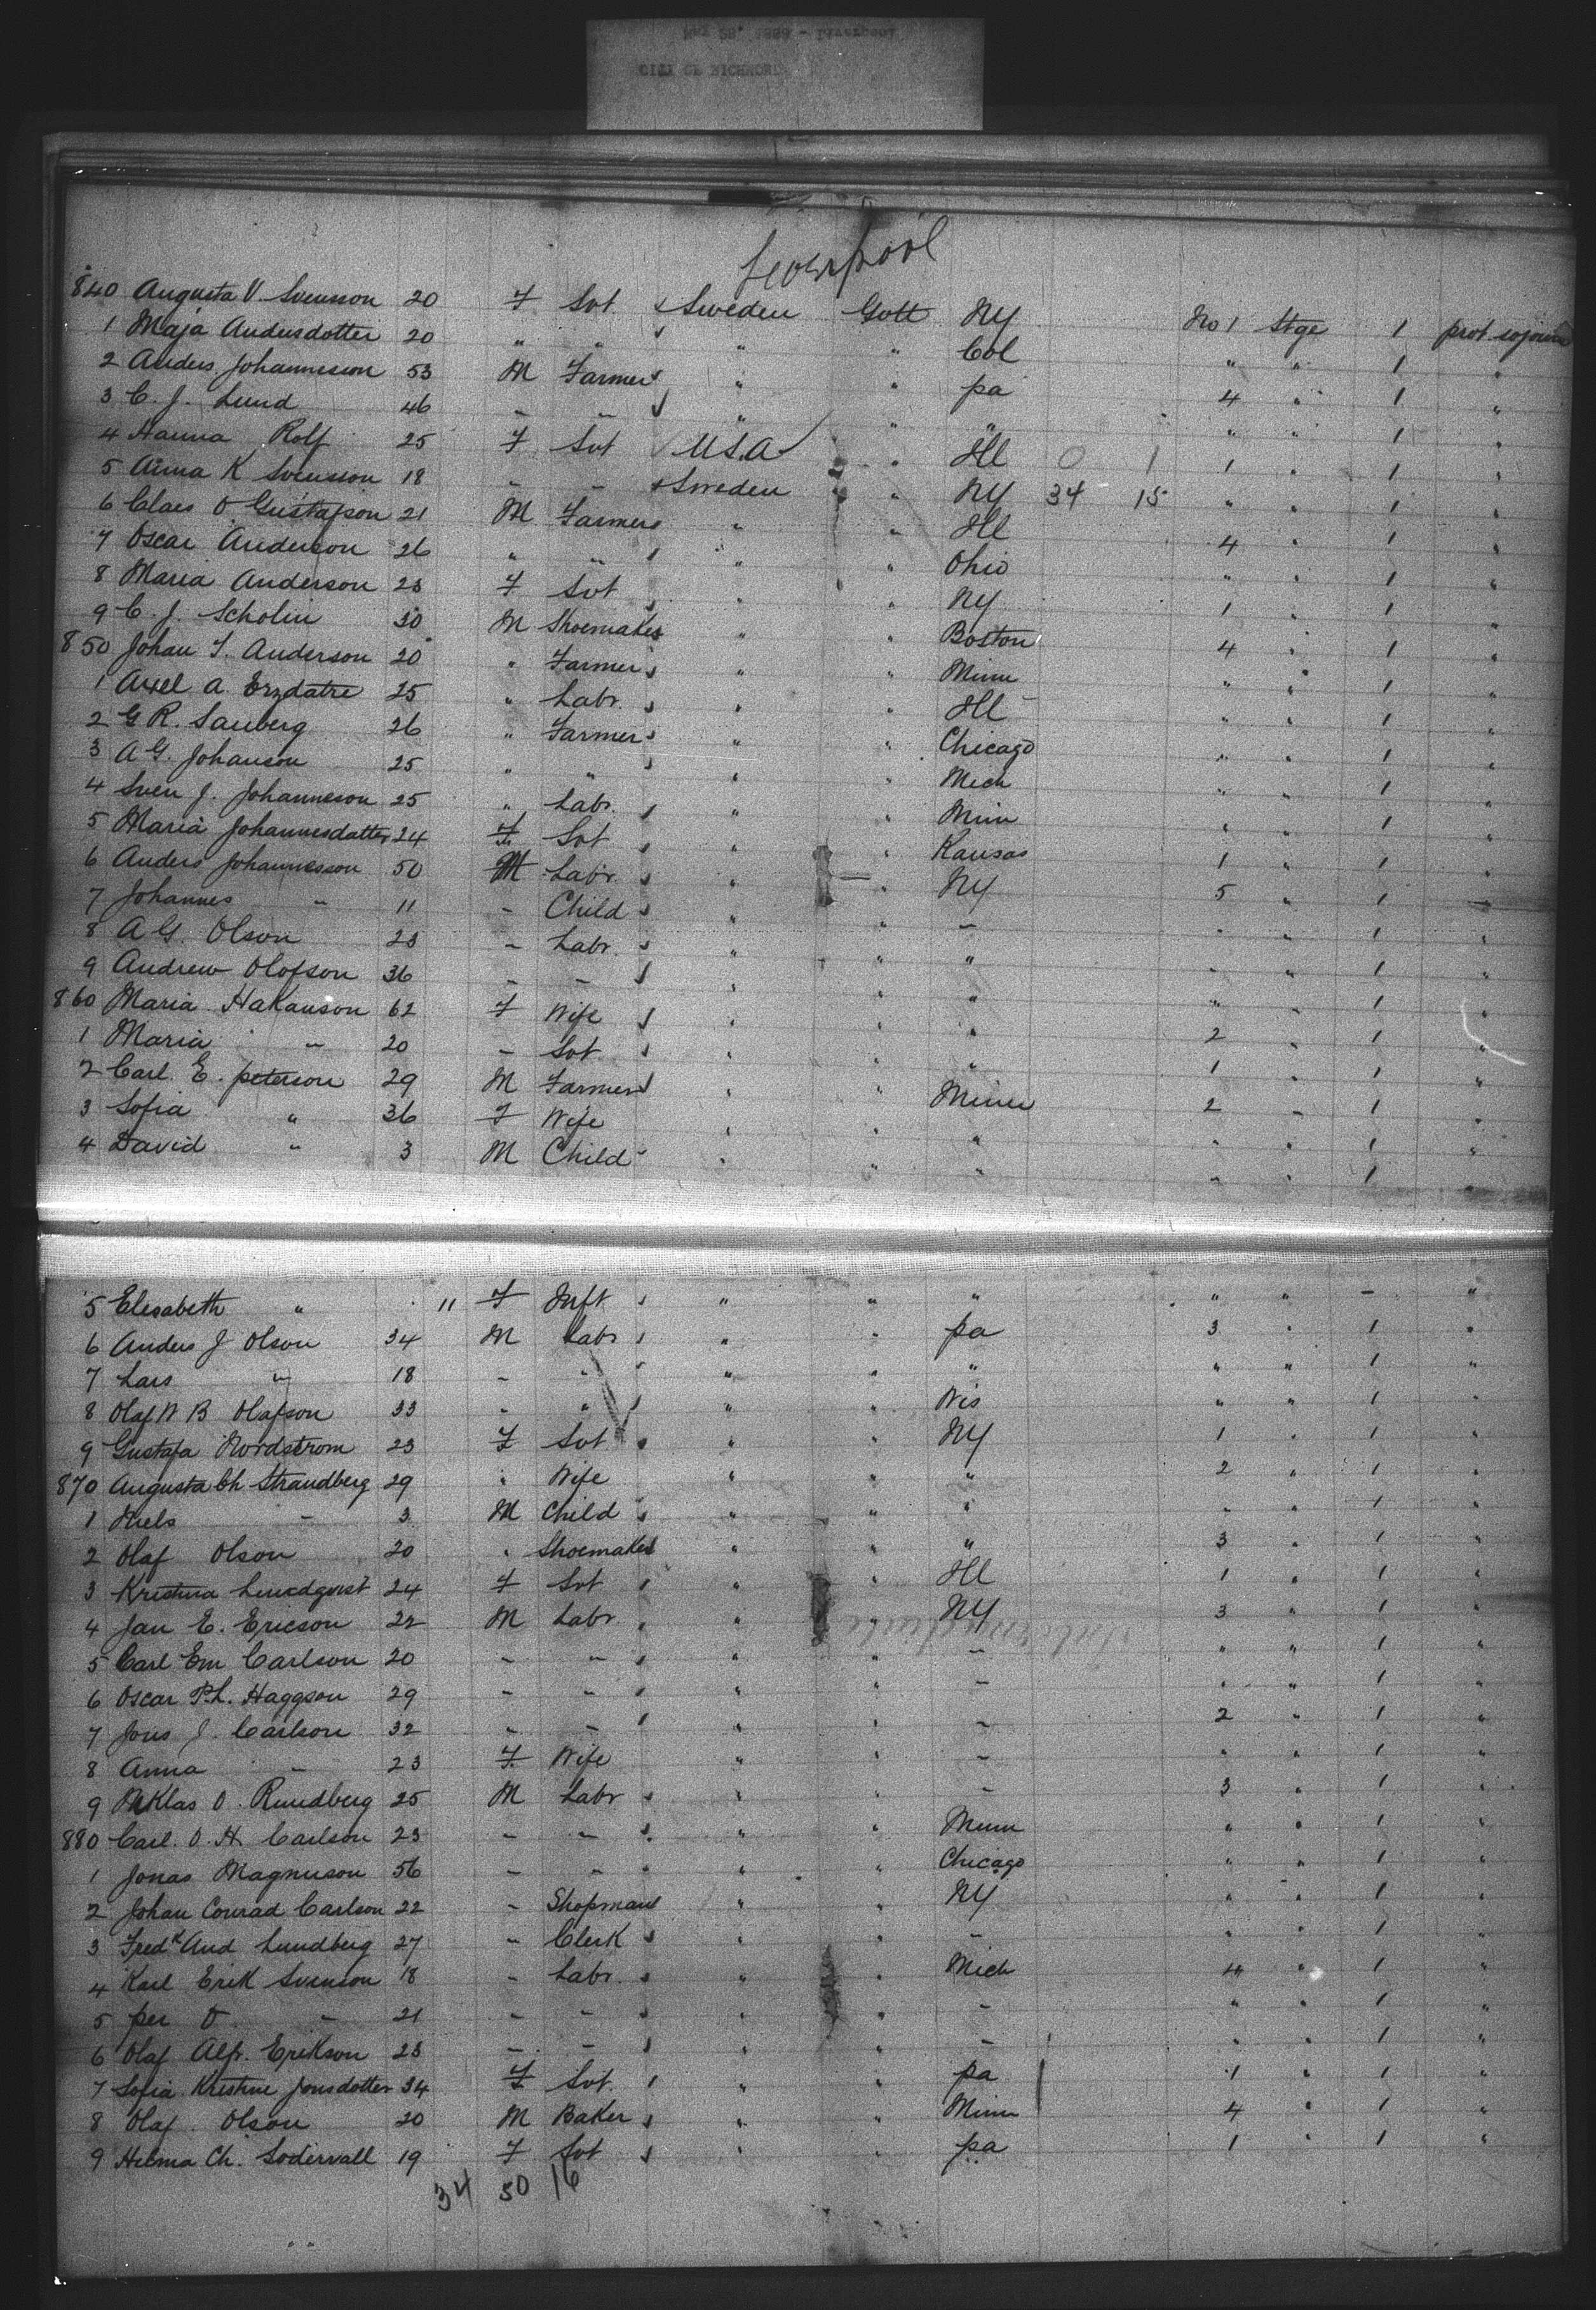 May 28, 1889 - Liverpool
CITY OF RICHMOND
Liverpool
840 Augusta V. Svensson 20 F Svt. Sweden Gott NY No 1 Stge 1 prot sojourn
1 Maja Andersdotter 20 " " " " Col " " 1 "
2 Anders Johanneson 53 M Farmer " " pa 4 " 1 "
3 C. J. Lund 46 " " " " " " " 1 "
4 Hanna Rolf 25 F Svt U.S.A " Ill 0 1 1 " 1 "
5 Anna K Svensson 18 " " Sweden " NY 34 15 " " 1 "
6 Claes O Gustafson 21 M Farmer " " Ill 4 " 1 "
7 Oscar Anderson 26 " " " " Ohio " " 1 "
8 Maria Anderson 23 F Svt " " NY 1 " 1 "
9 C. J. Scholin 30 M Shoemaker " " Boston 4 " 1 "
850 Johan T. Anderson 20 " Farmer " " Minn " " 1 "
1 Axel A. Erzdatre 25 " Labr. " " Ill " " 1 "
2 G R. Sanberg 26 " Farmer " " Chicago " " 1 "
3 A G. Johanson 25 " " " " Mich " " 1 "
4 Sven J. Johanneson 25 " Labr. " " Minn " " 1 "
5 Maria Johannesdatter 24 F. Svt " " Kansas 1 " 1 "
6 Anders Johannesson 50 M Labr. " " NY 5 " 1 "
7 Johannes " 11 " Child " " " " " 1 "
8 A G. Olson 23 " Labr. " " " " " 1 "
9 Andrew Olofson 36 " " " " " " " 1 "
860 Maria Hakanson 62 F Wife " " " 2 " 1 "
1 Maria " 20 " Svt " " " 1 " 1 "
2 Carl. E. peterson 29 M Farmer " " Minn 2 " 1 "
3 Sofia " 36 F Wife " " " " " 1 "
4 David " 3 M Child " " " " " 1 "
5 Elisabeth " 11 F Inft " " " " " - "
6 Anders J Olson 34 M Labr " " pa 3 " 1 "
7 Lars " 18 " " " " " " " 1 "
8 Olaf W B Olafson 33 " " " " Wis " " 1 "
9 Gustafa Nordstrom 23 F Svt " " NY 1 " 1 "
870 Augusta Ch Strandberg 29 " Wife " " " 2 " 1 "
1 Niels " 3 M Child " " " " " 1 "
2 Olaf Olson 20 " Shoemaker " " " 3 " 1 "
3 Kristina Lundqvist 24 F Svt " " Ill 1 " 1 "
4 Jan E. Ericson 22 M Labr " " NY 3 " 1 "
5 Carl Em Carlson 20 " " " " " " " 1 "
6 Oscar Ph. Haggson 29 " " " " " " " 1 "
7 Jons J. Carlson 32 " " " " " 2 " 1 "
8 Anna " 23 F. Wife " " " " " 1 "
9 Niklas O. Rundberg 25 M Labr " " " 3 " 1 "
880 Carl. O. H. Carlson 23 " " " " Minn " " 1 "
1 Jonas Magnuson 56 " " " " Chicago " " 1 "
2 Johan Conrad Carlson 22 " Shopman " " NY " " 1 "
3 Fredk And Lundberg 27 " Clerk " " " " " 1 "
4 Karl Erik Svenson 18 " Labr. " " Mich 4 " 1 "
5 per O. " 21 " " " " " " " 1 "
6 Olaf Alfr. Erikson 23 " " " " " " " 1 "
7 Sofia Kristine Jonsdotter 34 F Svt. " " pa 1 " 1 "
8 Olaf Olson 20 M Baker " " Minn 4 " 1 "
9 Hilma Ch. Sodervall 19 F Svt " " pa 1 " 1 "
34 50 16